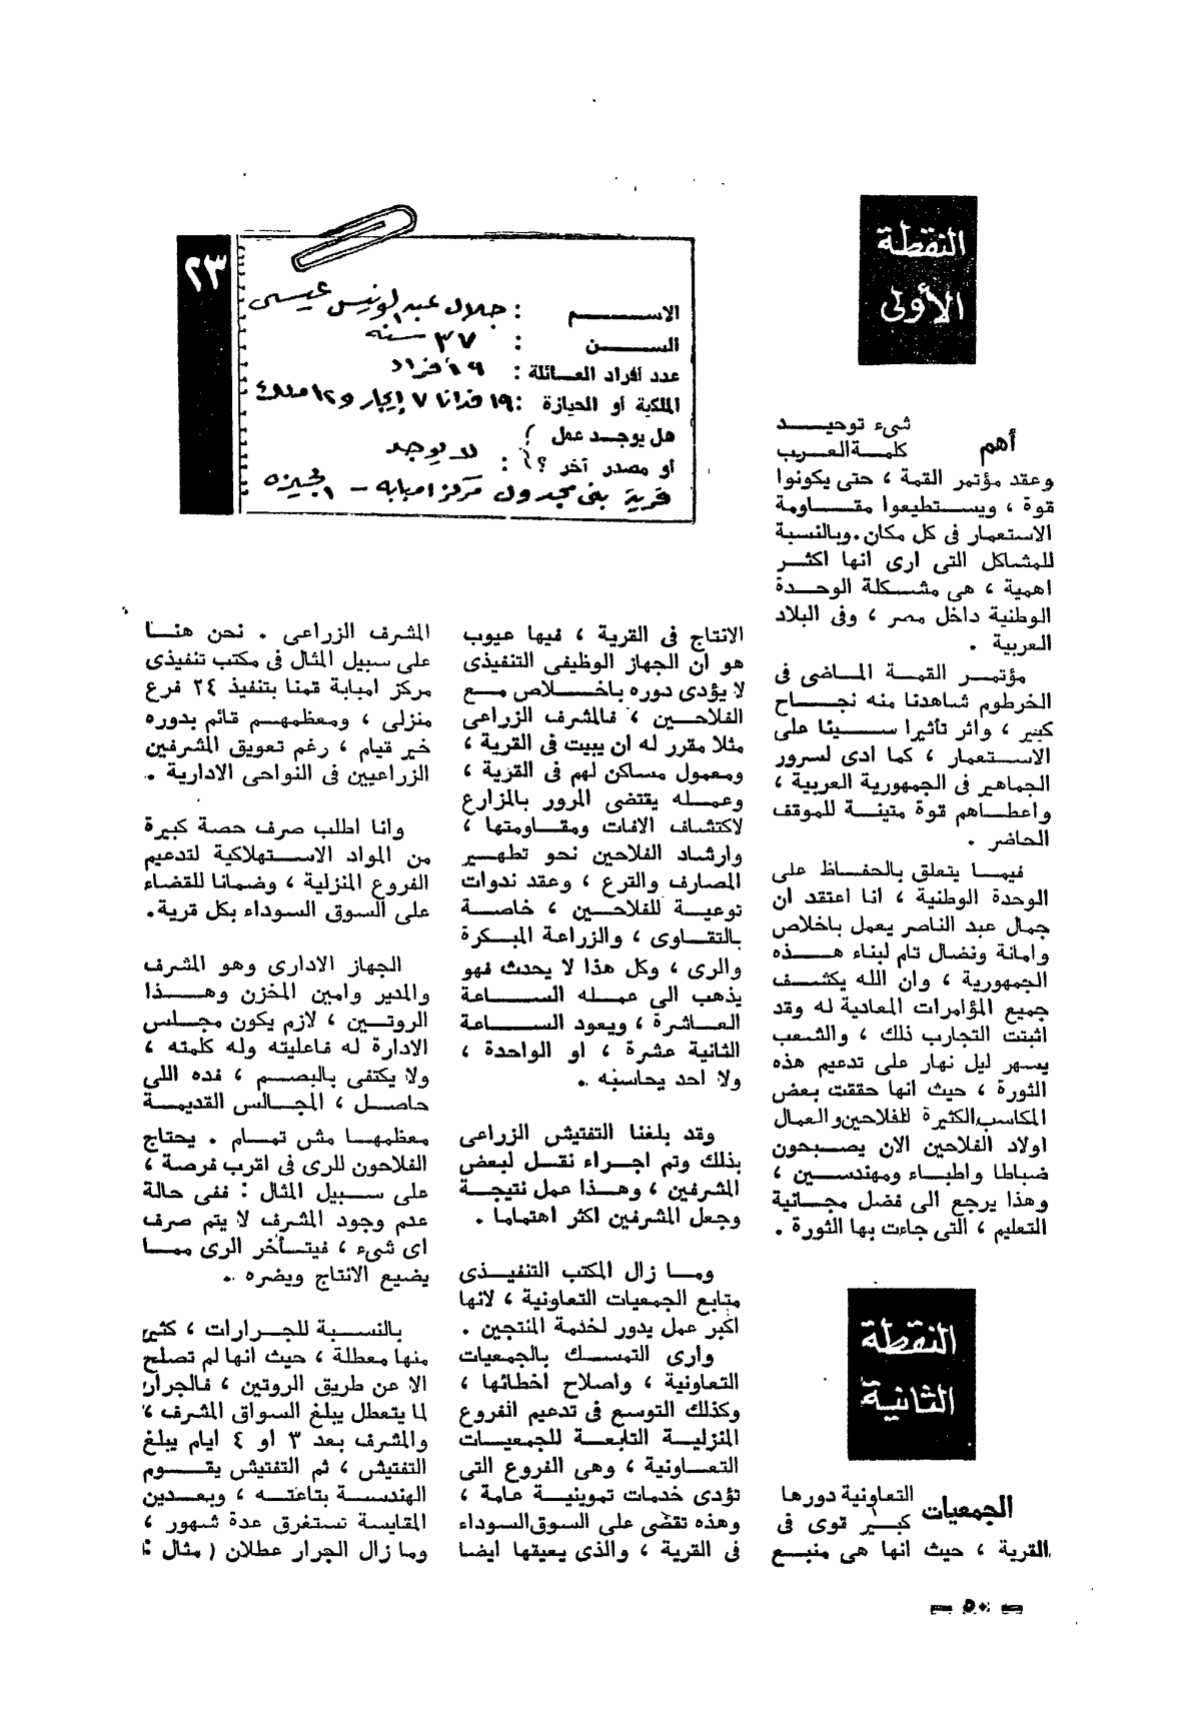 ٢٣
الاســـــم : جلال عبد لونيس عيسى
الســـــن : ٣٧ سنه
عدد أفراد العــائلة : ٩ أفراد
الملكية أو الحيازة : ١٩ فدانا ٧ إيجار و١٢ ملك
هل يوجـد عمل
أو مصدر آخر ؟ : لا يوجد
قرية بنى مجدول مركز امبابه - الجيزه
النقطة
الأولى
أهم شىء توحيـــد
كلمـــة العـــرب
وعقد مؤتمر القمة ، حتى يكونوا
قوة ، ويســـتطيعوا مقـــاومة
الاستعمار فى كل مكان . وبالنسبة
للمشاكل التى ارى انها اكثـــر
اهمية ، هى مشـــكلة الوحـــدة
الوطنية داخل مصر ، وفى البلاد
العربية .
مؤتمـــر القمـــة المـــاضى فى
الخرطوم شاهدنا منه نجـــاح
كبير ، واثر تأثيرا ســـيئا على
الاســـتعمار ، كما ادى لسرور
الجماهير فى الجمهورية العربية ،
واعطـــاهم قوة متينـــة للموقف
الحاضر .
فيمـــا يتعلق بالحفـــاظ على
الوحدة الوطنية ، انا اعتقد ان
جمال عبد الناصر يعمل باخلاص
وامانة ونضال تام لبناء هـــذه
الجمهورية ، وان الله يكشـــف
جميع المؤامرات المعادية له وقد
اثبتت التجارب ذلك ، والشعب
يسهر ليل نهار على تدعيم هذه
الثورة ، حيث انها حققت بعض
المكاسب الكثيرة للفلاحين والعمال
اولاد الفلاحين الان يصـــبحون
ضباطا واطبـــاء ومهندســـين ،
وهذا يرجع الى فضل مجـــانية
التعليم ، التى جاءت بها الثورة .
النقطة
الثانية
الجمعيات التعاونية دورها
كبـــير قوى فى
القرية ، حيث انها هى منبـــع
الانتاج فى القرية ، فيها عيوب
هو ان الجهاز الوظيفى التنفيذى
لا يؤدى دوره باخـــلاص مـــع
الفلاحـــين ، فالمشرف الزراعى
مثلا مقرر له ان يبيت فى القرية ،
ومعمول مساكن لهم فى القرية ،
وعمـــله يقتضى المرور بالمزارع
لاكتشـــاف الافات ومقـــاومتها ،
وارشاد الفلاحين نحو تطهـــير
المصارف والترع ، وعقد ندوات
توعيـــة للفلاحـــين ، خاصـــة
بالتقـــاوى ، والزراعة المبـــكرة
والرى ، وكل هذا لا يحدث فهو
يذهب الى عمـــله الســـاعة
العـــاشرة ، ويعود الســـاعة
الثانية عشرة ، او الواحدة ،
ولا احد يحاسبه .
وقد بلغنا التفتيش الزراعى
بذلك وتم اجـــراء نقـــل لبعض
المشرفين ، وهـــذا عمل نتيجـــة
وجعل المشرفين اكثر اهتماما .
ومـــا زال المكتب التنفيـــذى
متابع الجمعيات التعاونية ، لانها
اكبر عمل يدور لخدمة المنتجين .
وارى التمســـك بالجمعيات
التعاونية ، واصلاح اخطائها ،
وكذلك التوسع فى تدعيم الفروع
المنزليـــة التابعـــة للجمعيـــات
التعـــاونية ، وهى الفروع التى
تؤدى خدمات تموينيـــة عامة ،
وهذه تقضى على السوق السوداء
فى القرية ، والذى يعيقها ايضا
المشرف الزراعى . نحن هنـــا
على سبيل المثال فى مكتب تنفيذى
مركز امبابة قمنا بتنفيذ ٢٤ فرع
منزلى ، ومعظمهـــم قائم بدوره
خير قيام ، رغم تعويق المشرفين
الزراعيين فى النواحى الادارية .
وانا اطلب صرف حصة كبيرة
من المواد الاســـتهلاكية لتدعيم
الفروع المنزلية ، وضمانا للقضاء
على السوق السوداء بكل قرية .
الجهاز الادارى وهو المشرف
والمدير وامين المخزن وهـــذا
الروتـــين ، لازم يكون مجـــلس
الادارة له فاعليته وله كلمته ،
ولا يكتفى بالبصـــم ، فده اللى
حاصـــل ، المجـــالس القديمـــة
معظمهـــا مش تمـــام . يحتاج
الفلاحون للرى فى اقرب فرصة ،
على ســـبيل المثال : ففى حالة
عدم وجود المشرف لا يتم صرف
اى شىء ، فيتـــأخر الرى ممـــا
يضيع الانتاج ويضره .
بالنســـبة للجـــرارات ، كثير
منها معطلة ، حيث انها لم تصلح
الا عن طريق الروتين ، فالجرار
لما يتعطل يبلغ السواق المشرف ،
والمشرف بعد ٣ او ٤ ايام يبلغ
التفتيش ، ثم التفتيش يقـــوم
الهندســـة بتاعتـــه ، وبعـــدين
المقايسة تستغرق عدة شهور ،
وما زال الجرار عطلان ( مثال :
— ٥٠ —